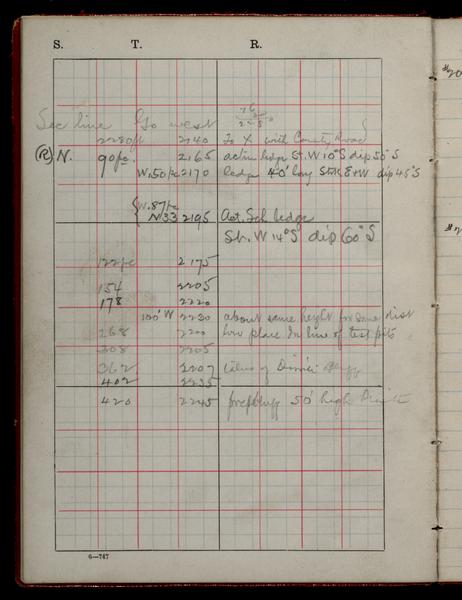 S. T. R.
Sec line Go west
2280 ft 2240 To X with County Road
(R) N. 90 pc 2165 actin ledge St. W 10°S dip 50°S
W. 50 pc 2170 Ledge 40' long Strk E+W dip 45°S
W. 87 pc
N 33 2195 Act. Sch ledge
St. W 14°S dip 60°S
122 pc 2175
154 2205
178 2220
100' W 2230 about same height for some dist
268 2200 low place In line of test pits
308 2205
362 2207
402 2235
420 2245 50' high
6—747